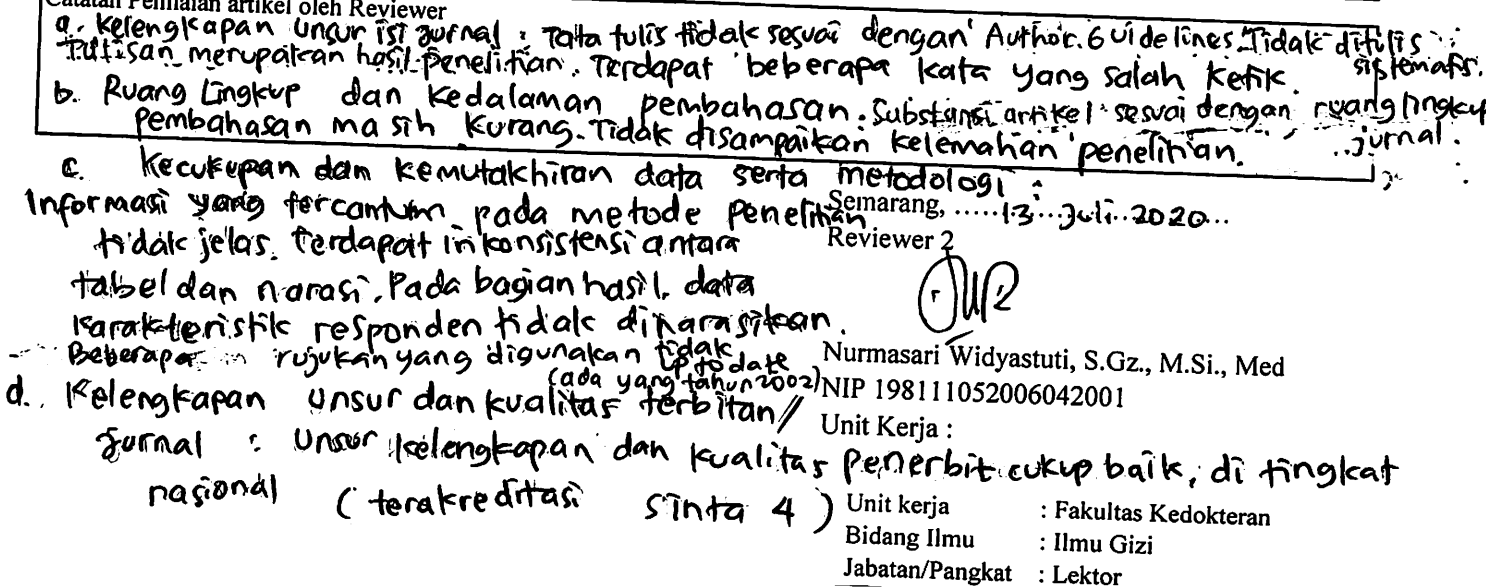 Catatan Penilaian artikel oleh Reviewer
a. Kelengkapan unsur isi jurnal : Tata tulis tidak sesuai dengan Author Guidelines. Tidak ditulis sistematis.
Tulisan merupakan hasil penelitian. Terdapat beberapa kata yang salah ketik.
b. Ruang Lingkup dan kedalaman pembahasan. Substansi artikel sesuai dengan ruang lingkup jurnal.
pembahasan masih kurang. Tidak disampaikan kelemahan penelitian.
c. Kecukupan dan kemutakhiran data serta metodologi :
Informasi yang tercantum pada metode penelitian
tidak jelas. Terdapat inkonsistensi antara
tabel dan narasi. Pada bagian hasil, data
karakteristik responden tidak dinarasikan.
Beberapa rujukan yang digunakan tidak
up to date
(ada yang tahun 2002)
d. Kelengkapan unsur dan kualitas terbitan/
Jurnal : Unsur kelengkapan dan kualitas penerbit cukup baik, di tingkat
nasional (terakreditasi Sinta 4)
Semarang, .....13...Juli..2020...
Reviewer 2
Nurmasari Widyastuti, S.Gz., M.Si., Med
NIP 198111052006042001
Unit Kerja :
Unit kerja : Fakultas Kedokteran
Bidang Ilmu : Ilmu Gizi
Jabatan/Pangkat : Lektor